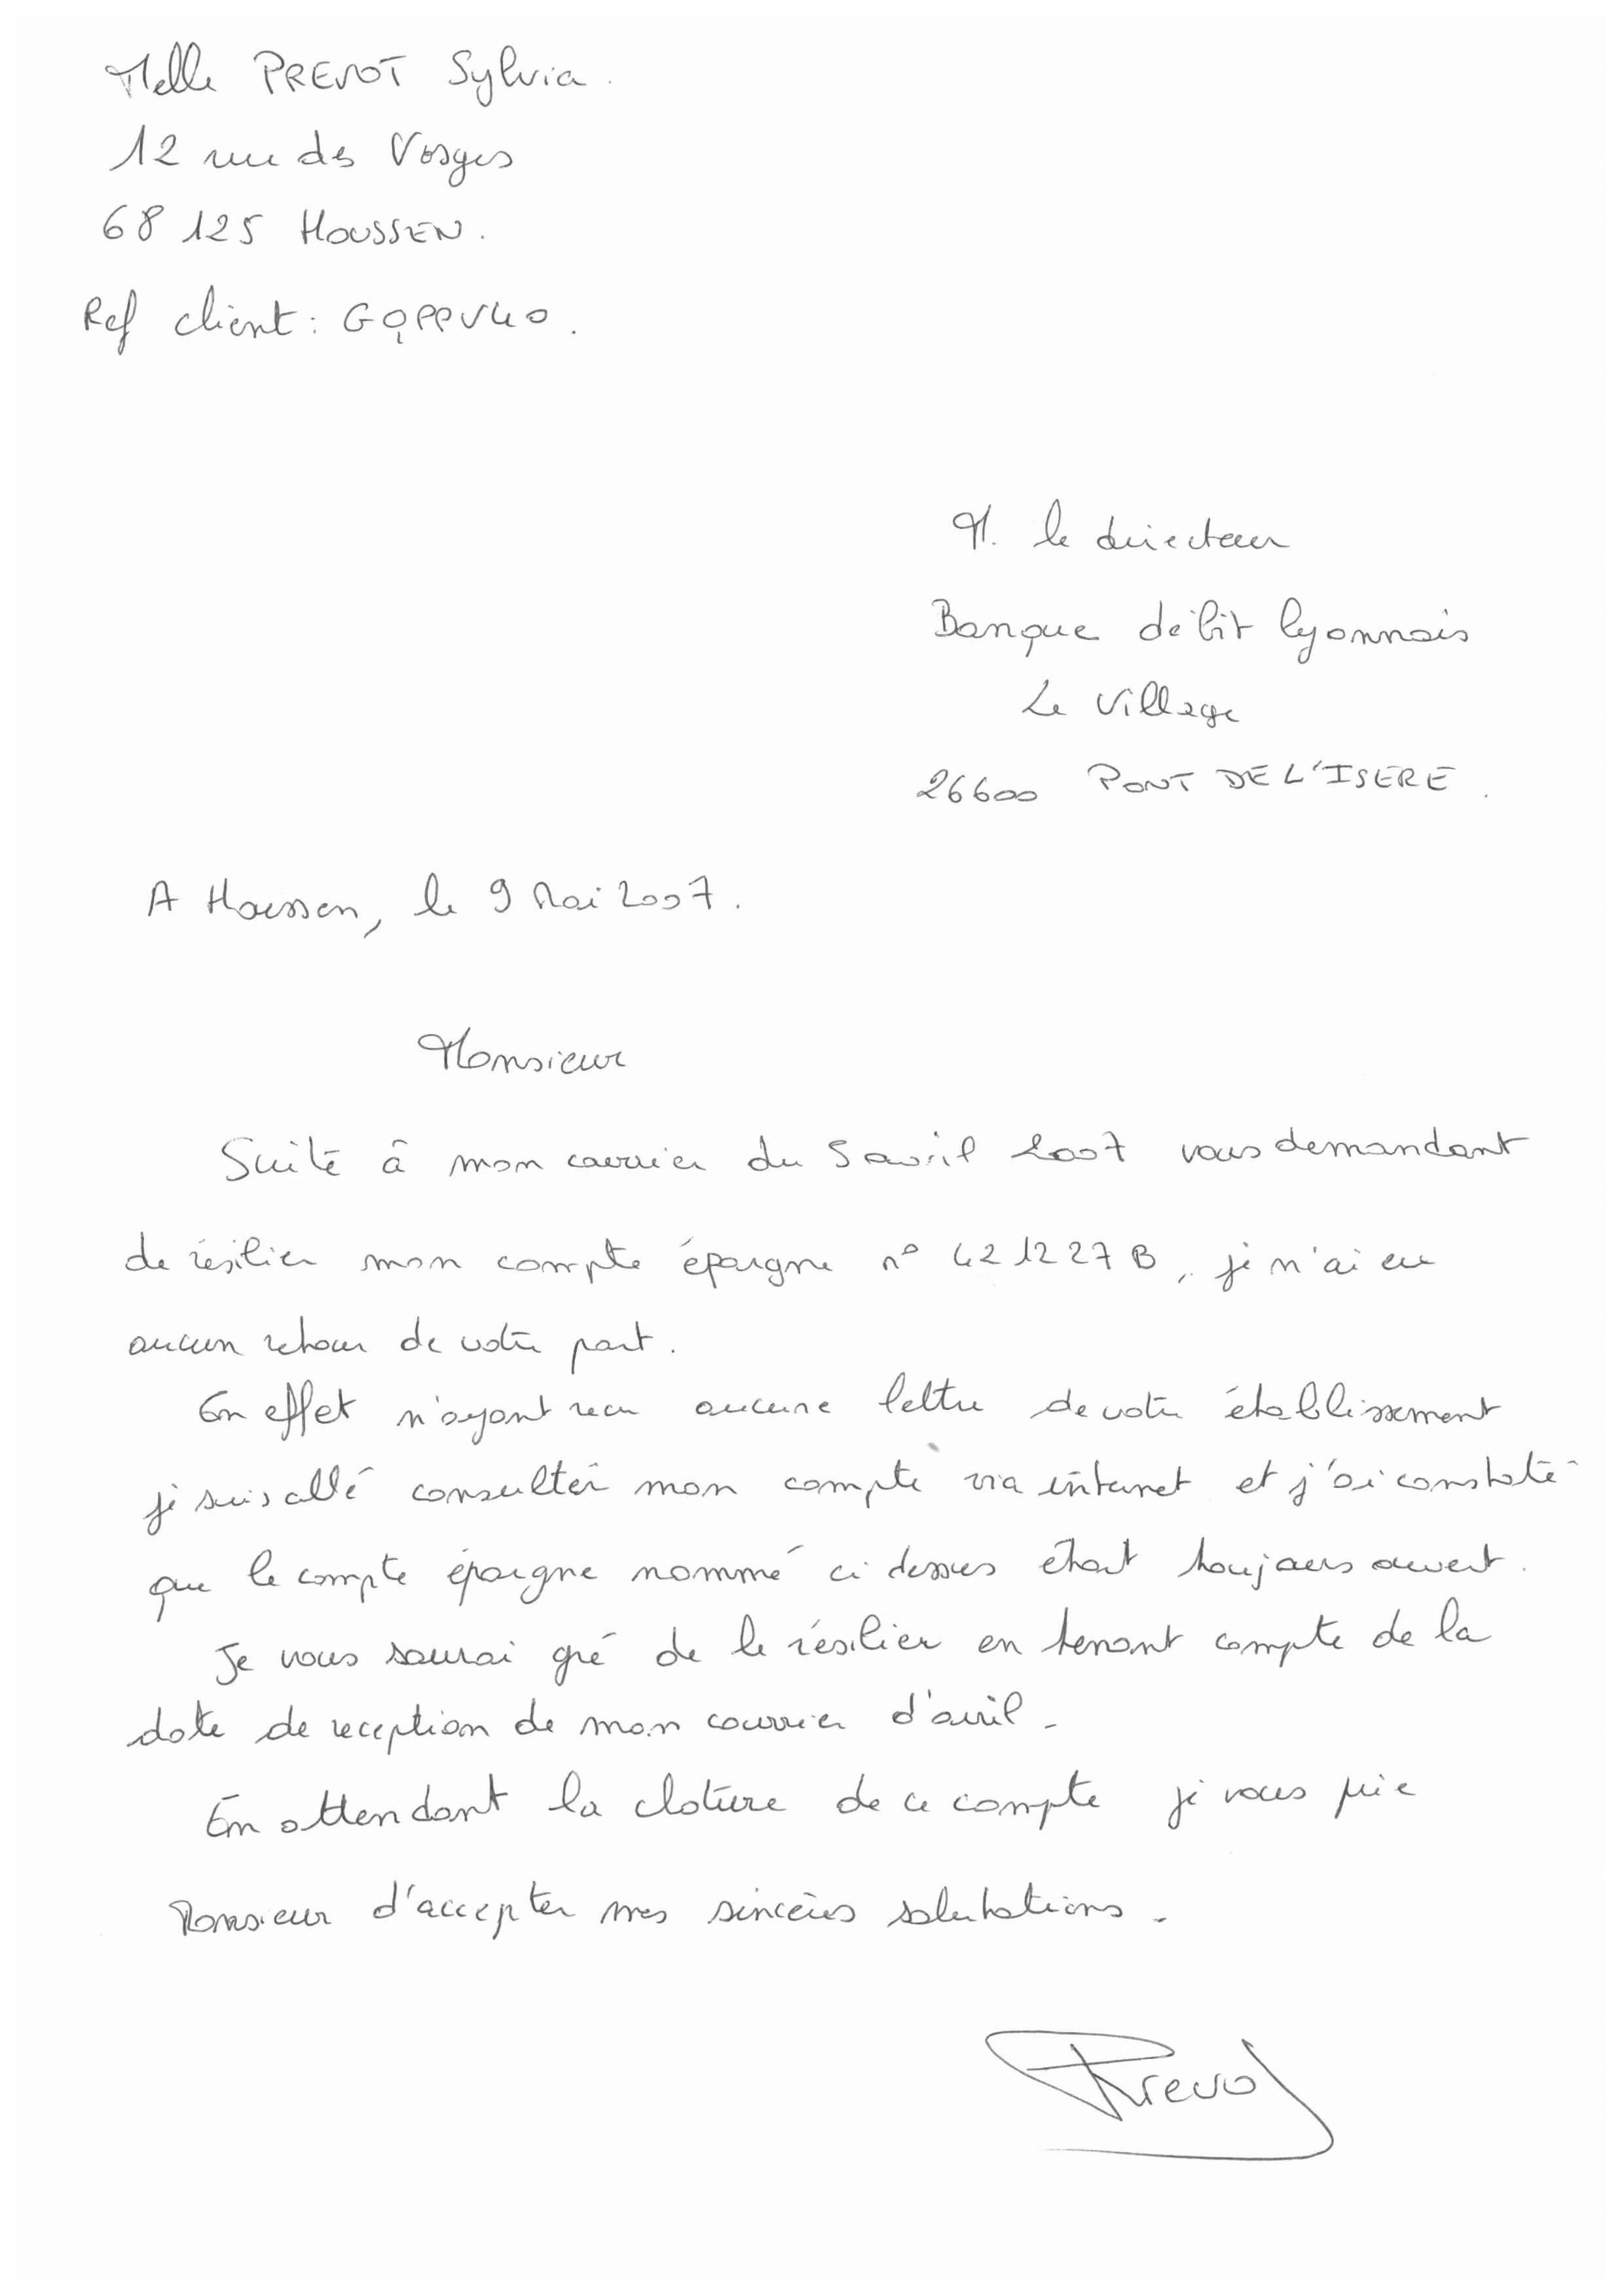 Melle PREVOT Sylvia.
12 rue des Vosges
68 125 HOUSSEN.
Ref client : GQPPV40.
M. le directeur
Banque débit lyonnais
Le Village
26600 PONT DE L'ISERE.
A Houssen, le 9 Mai 2007.
Monsieur
Suite à mon courrier du 5 avril 2007 vous demandant
de résilier mon compte épargne n° 421227B, je n'ai eu
aucun retour de votre part.
En effet n'ayant recu aucune lettre de votre établissement
je suis allé consulter mon compte via internet et j'ai constaté
que le compte épargne nommé ci dessus était toujours ouvert.
Je vous saurai gré de le résilier en tenant compte de la
date de reception de mon courrier d'avril.
En attendant la cloture de ce compte je vous prie
Monsieur d'accepter mes sincères salutations.
Prevot